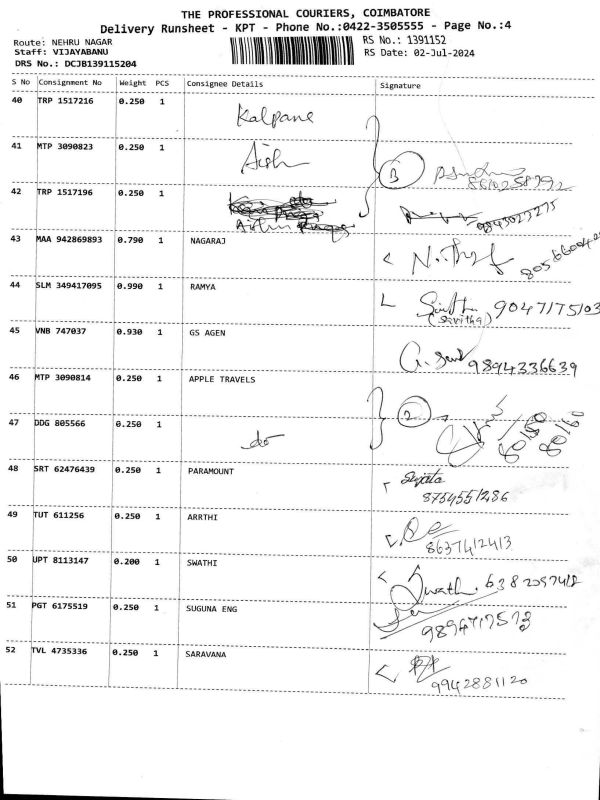 THE PROFESSIONAL COURIERS, COIMBATORE
Delivery Runsheet - KPT - Phone No.:0422-3505555 - Page No.:4
Route: NEHRU NAGAR RS No.: 1391152
Staff: VIJAYABANU RS Date: 02-Jul-2024
DRS No.: DCJB139115204
S No Consignment No Weight PCS Consignee Details Signature
40 TRP 1517216 0.250 1 Kalpane
41 MTP 3090823 0.250 1 Aish
42 TRP 1517196 0.250 1
43 MAA 942869893 0.790 1 NAGARAJ
44 SLM 349417095 0.990 1 RAMYA
(Savitha) 9047175103
45 VNB 747037 0.930 1 GS AGEN
9894336639
46 MTP 3090814 0.250 1 APPLE TRAVELS
2
47 DDG 805566 0.250 1 do
48 SRT 62476439 0.250 1 PARAMOUNT Sujata
8754551286
49 TUT 611256 0.250 1 ARRTHI
8637412413
50 UPT 8113147 0.200 1 SWATHI Swathi
51 PGT 6175519 0.250 1 SUGUNA ENG
9894717573
52 TVL 4735336 0.250 1 SARAVANA
9942881120